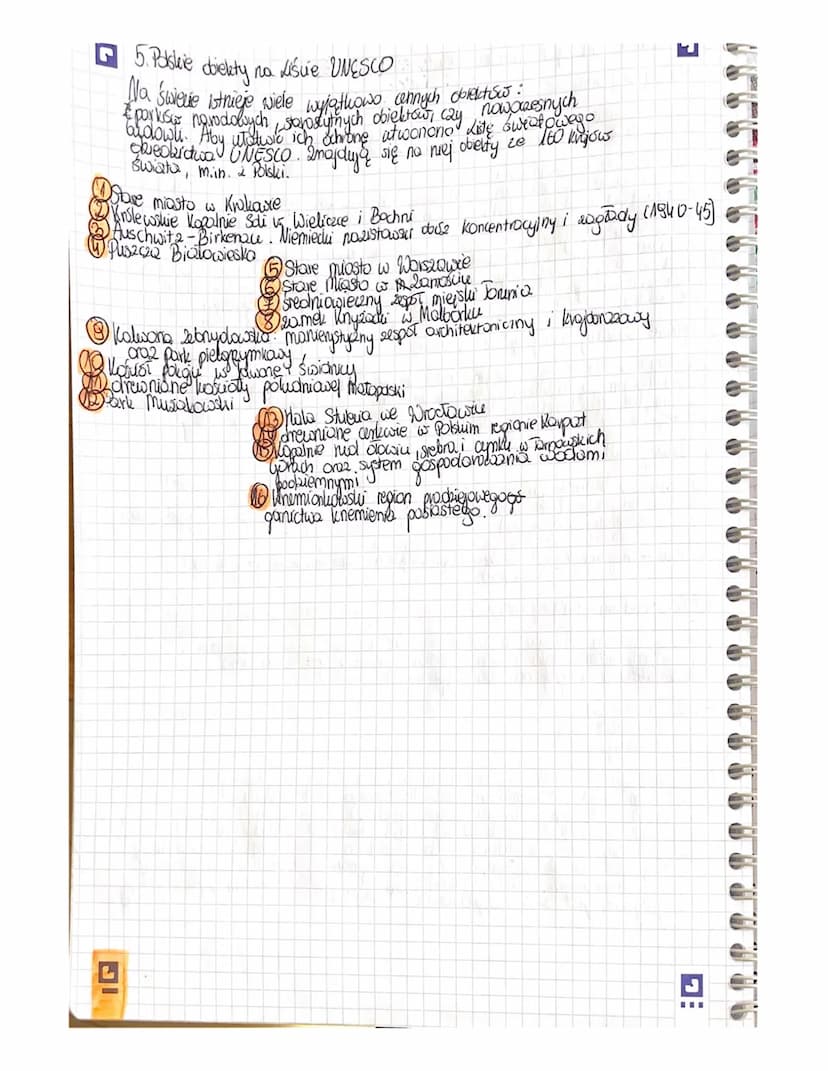 5. Polskie obiekty na Liście UNESCO
Na świecie istnieje wiele wyjątkowo cennych obiektów:
parków narodowych, starożytnych obiektów, czy nowoczesnych
budowli. Aby ułatwić ich ochronę utworzono Listę Światowego
Dziedzictwa UNESCO. Znajdują się na niej obiekty ze 160 krajów
świata, m.in. z Polski.
1 Stare miasto w Krakowie
2 Królewskie Kopalnie Soli w Wieliczce i Bochni
3 Auschwitz-Birkenau. Niemiecki nazistowski obóz koncentracyjny i zagłady (1940-45)
4 Puszcza Białowieska
5 Stare miasto w Warszawie
6 Stare Miasto w Zamościu
7 średniowieczny zespół miejski Torunia
8 zamek Krzyżacki w Malborku
9 Kalwaria Zebrzydowska: manierystyczny zespół architektoniczny i krajobrazowy
oraz Park pielgrzymkowy
10 Kościół Pokoju w Jaworze i Świdnicy
11 drewniane kościoły południowej Małopolski
12 Park Mużakowski
13 Hala Stulecia we Wrocławiu
14 drewniane cerkwie w Polskim regionie Karpat
15 Kopalnie rud ołowiu, srebra i cynku w Tarnowskich
Górach oraz system gospodarowania wodami
podziemnymi
16 Krzemionkowski region pradziejowego
górnictwa krzemienia pasiastego.